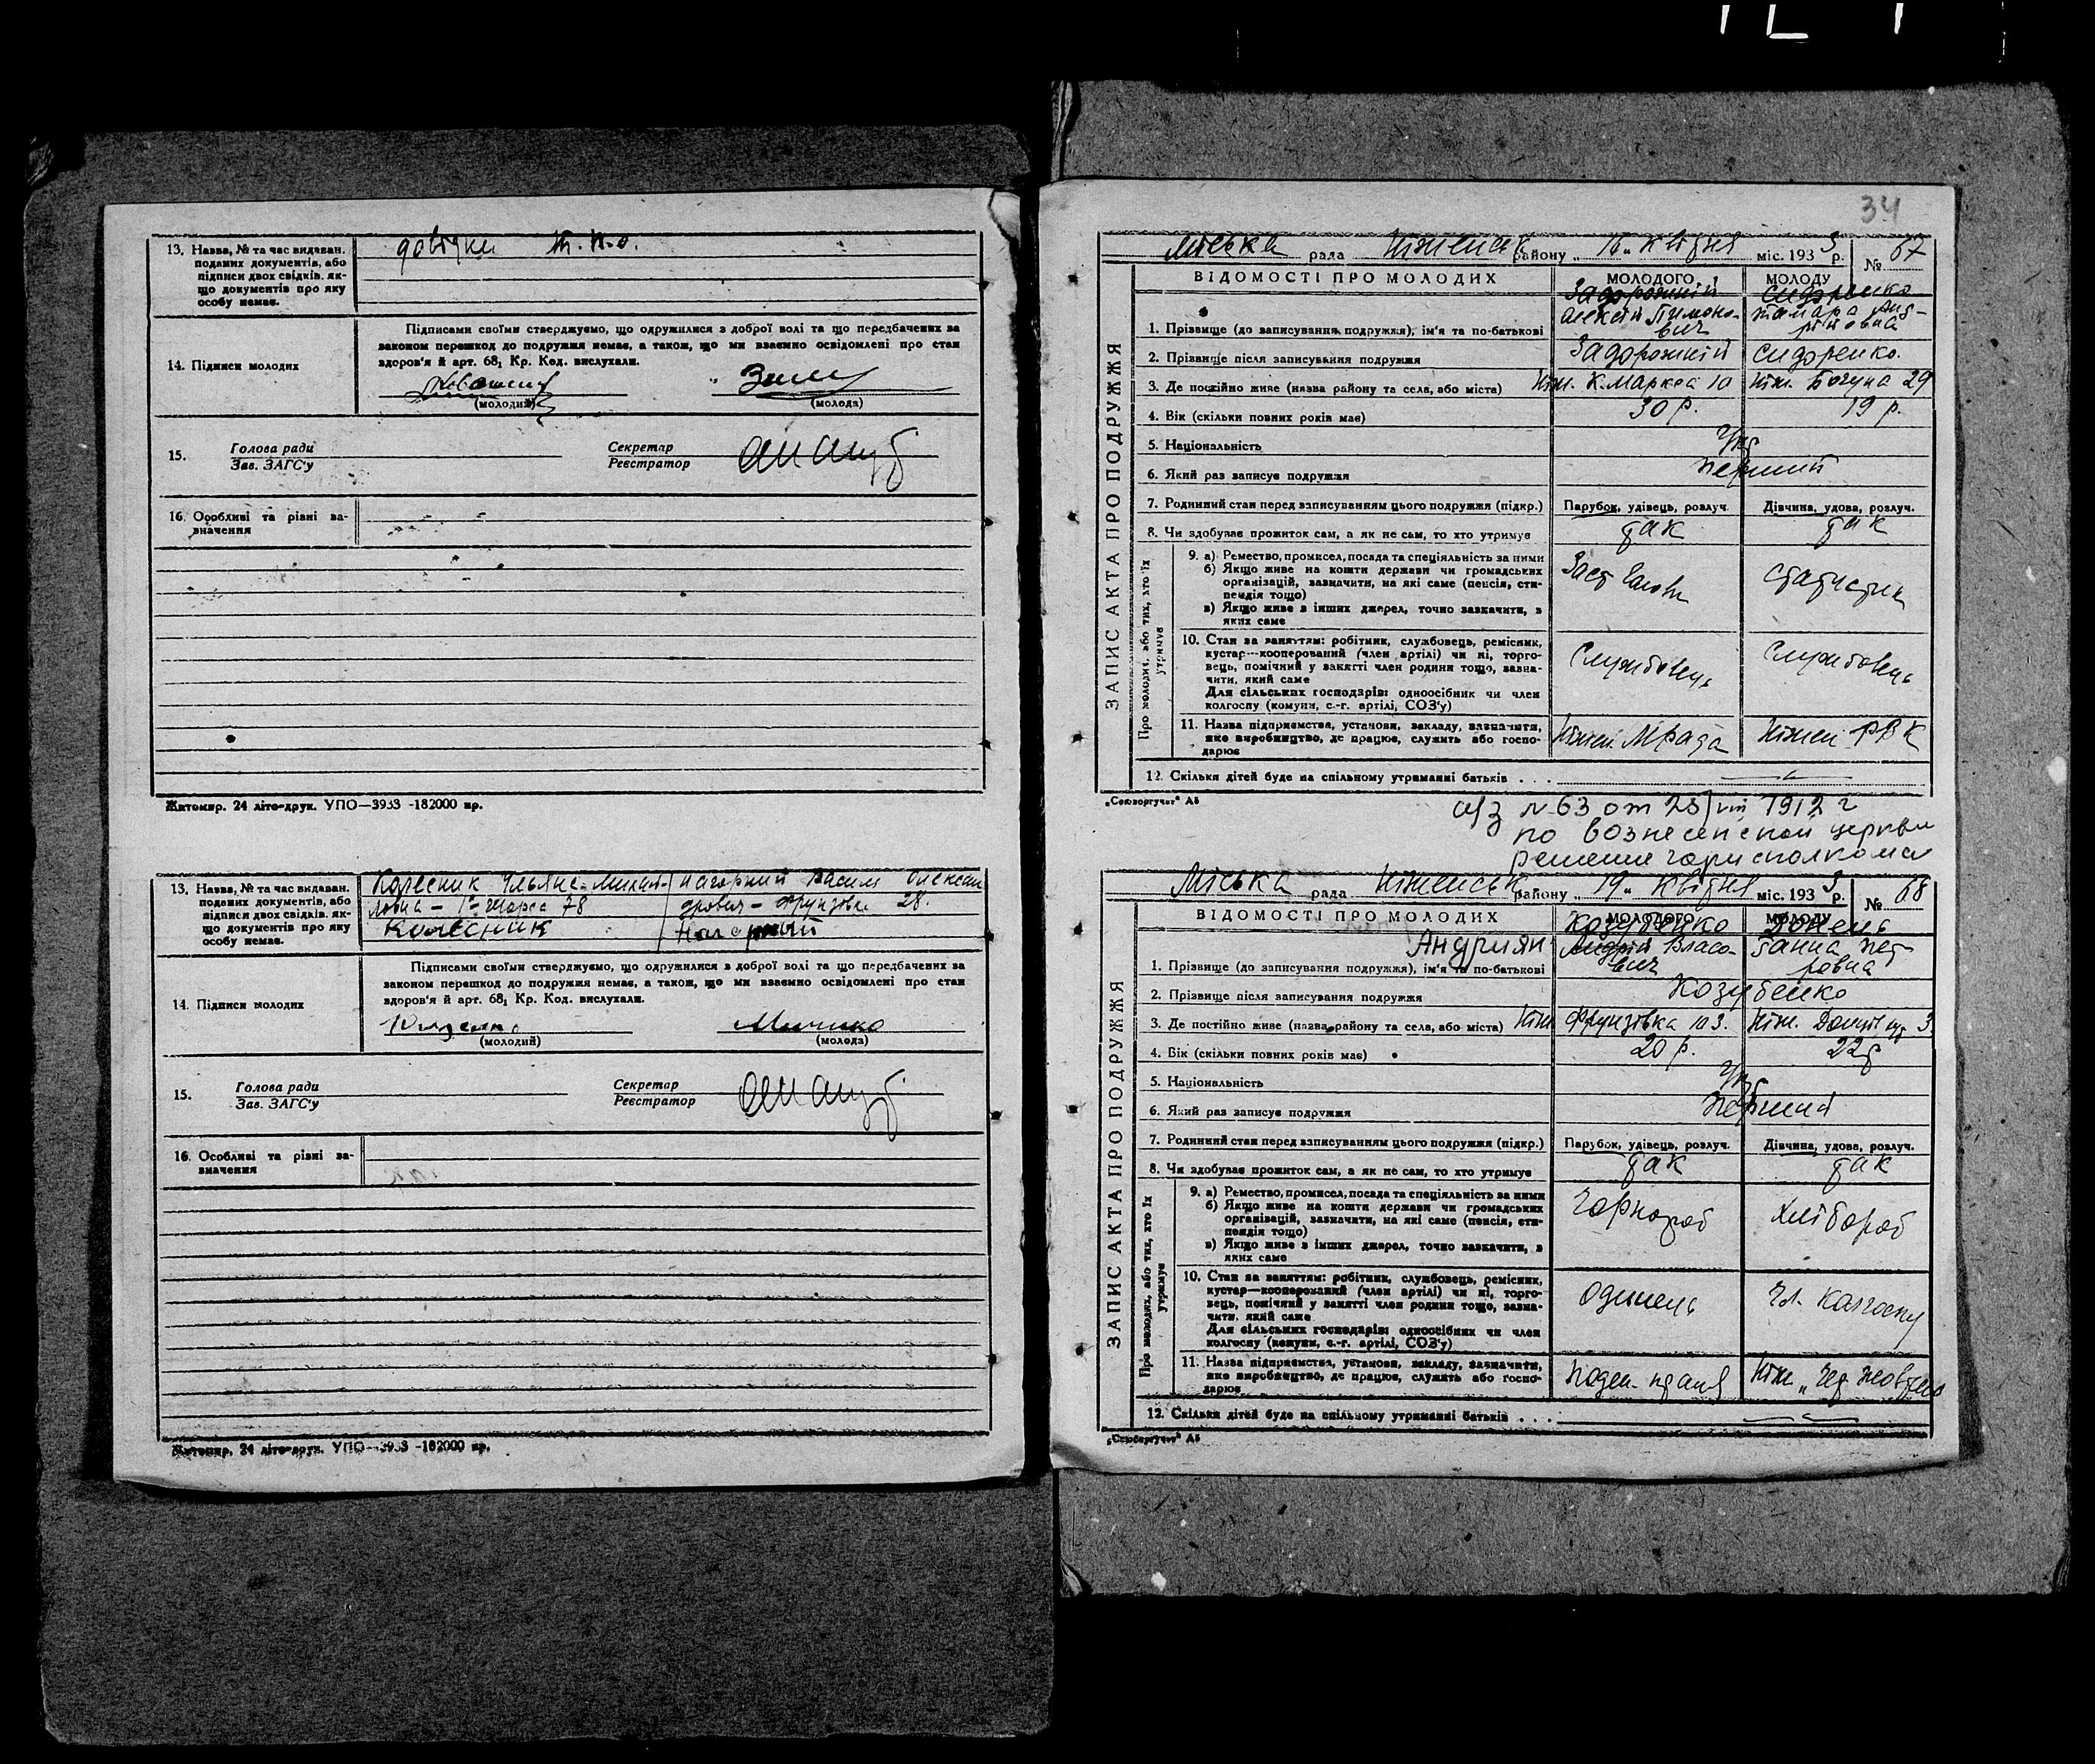 13. Назва, № та час видаван.
поданих документів, або
підписи двох свідків, як-
що документів про яку
особу немає.
довідки
Підписами своїми стверджуємо, що одружилися з доброї волі та що передбачених за
законом перешкод до подружжя немає, а також, що ми взаємно освідомлені про стан
здоров'я й арт. 68, Кр. Код. вислухали.
14. Підписи молодих
(молодий)
(молода)
15.
Голова ради
Зав. ЗАГС'у
Секретар
Реєстратор
16. Особливі та різні за-
значення
Житомир. 24 літо-друк. УПО—3933 -182000 пр.
13. Назва, № та час видаван.
поданих документів, або
підписи двох свідків, як-
що документів про яку
особу немає.
Колесник Ульяна Михай-
ловна - 78
Колесник
Нагорний Василь Олексан
дрович - Фрунзівка 28.
Нагорный
Підписами своїми стверджуємо, що одружилися з доброї волі та що передбачених за
законом перешкод до подружжя немає, а також, що ми взаємно освідомлені про стан
здоров'я й арт. 68, Кр. Код. вислухали.
14. Підписи молодих
(молодий)
(молода)
15.
Голова ради
Зав. ЗАГС'у
Секретар
Реєстратор
16. Особливі та різні за-
значення
Житомир. 24 літо-друк. УПО—3933 -182000 пр.
34
Міська рада Ніженськ району „16„ квітня міс. 1933 р. № 67
ЗАПИС АКТА ПРО ПОДРУЖЖЯ
ВІДОМОСТІ ПРО МОЛОДИХ
МОЛОДОГО
МОЛОДУ
1. Прізвище (до записування подружжя), ім'я та по-батькові
Задорожній
Алексій Тимоно-
вич
Сидоренко
Тамара Анд-
ріївна
2. Прізвище після записування подружжя Задорожній Сидоренко.
3. Де постійно живе (назва району та села, або міста) Ніж. К.Маркса 10 Ніж. Богуна 29
4. Вік (скільки повних років має) 30 р. 19 р.
5. Національність Укр
6. Який раз записує подружжя перший
7. Родинний стан перед записуванням цього подружжя (підкр.) Парубок, удівець, розлуч. Дівчина, удова, розлуч.
8. Чи здобуває прожиток сам, а як не сам, то хто утримує так так
Про молодих, або тих, хто їх утримує
9. а) Ремество, промисел, посада та спеціяльність за ними
б) Якщо живе на кошти держави чи громадських
організацій, зазначити, на які саме (пенсія, сти-
пендія тощо)
в) Якщо живе з інших джерел, точно зазначити, з
яких саме
статистик
10. Стан за заняттям: робітник, службовець, ремісник,
кустар—кооперований (член артілі) чи ні, торго-
вець, помічний у занятті член родини тощо, зазна-
чити, який саме
Для сільських господарів: одноосібник чи член
колгоспу (комуни, с.-г. артілі, СОЗ'у)
Службовець
Службовець
11. Назва підприємства, установи, закладу, зазначити,
яке виробництво, де працює, служить або госпо-
дарює
Ніжен. МРада
Ніжен РВК
12. Скільки дітей буде на спільному утриманні батьків . . .
„Союзоргучет“ А5
а/з № 63 от 28/VIII 1912 г
по вознесенской церкви
решение горисполкома
Міська рада Ніженськ району „19„ квітня міс. 1933 р. № 68
ЗАПИС АКТА ПРО ПОДРУЖЖЯ
ВІДОМОСТІ ПРО МОЛОДИХ
МОЛОДОГО
МОЛОДУ
1. Прізвище (до записування подружжя), ім'я та по-батькові
Козубенко
Андриян
Андрій Власо-
вич
Донець
Ганна Пет
ровна
2. Прізвище після записування подружжя Козубенко
3. Де постійно живе (назва району та села, або міста) Ніж Фрунзівка 103. Ніж. 3
4. Вік (скільки повних років має) 20 р. 22 р
5. Національність Укр
6. Який раз записує подружжя перший
7. Родинний стан перед записуванням цього подружжя (підкр.) Парубок, удівець, розлуч. Дівчина, удова, розлуч.
8. Чи здобуває прожиток сам, а як не сам, то хто утримує так так
Про молодих, або тих, хто їх утримує
9. а) Ремество, промисел, посада та спеціяльність за ними
б) Якщо живе на кошти держави чи громадських
організацій, зазначити, на які саме (пенсія, сти-
пендія тощо)
в) Якщо живе з інших джерел, точно зазначити, з
яких саме
Чорнороб
Хлібороб
10. Стан за заняттям: робітник, службовець, ремісник,
кустар—кооперований (член артілі) чи ні, торго-
вець, помічний у занятті член родини тощо, зазна-
чити, який саме
Для сільських господарів: одноосібник чи член
колгоспу (комуни, с.-г. артілі, СОЗ'у)
Одинець
Чл. колгоспу
11. Назва підприємства, установи, закладу, зазначити,
яке виробництво, де працює, служить або госпо-
дарює
Поден. праця
Ніж. „Чер Жовтень
12. Скільки дітей буде на спільному утриманні батьків . . .
„Союзоргучет“ А5